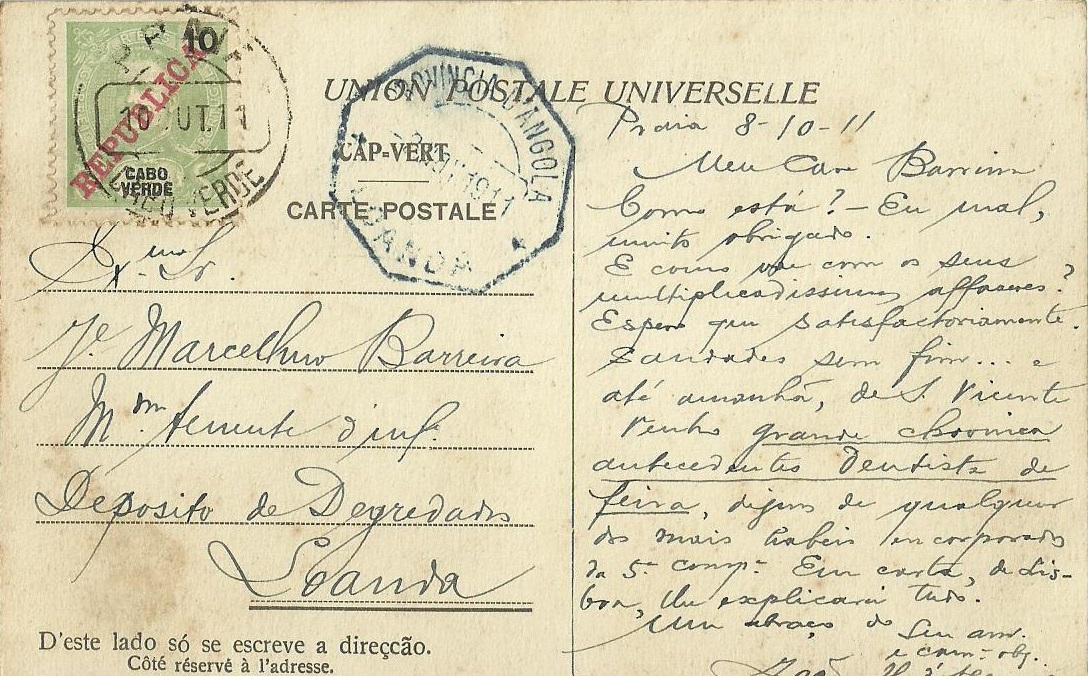 PRAIA
10
REPUBLICA
10 OUT. 11
CABO
VERDE
CABO VERDE
PROVINCIA D'ANGOLA
1911
LOANDA
UNION POSTALE UNIVERSELLE
CAP-VERT
CARTE POSTALE
Exmo Sr.
Je Marcellino Barreira
M. Dm. tenente d'inf.
Deposito de Degredados
Loanda
D'este lado só se escreve a direcção.
Côté réservé à l'adresse.
Praia 8-10-11
Meu Caro Barreira
Como está? – Eu mal,
muito obrigado.
E como vae com os seus
multiplicadissimos affazeres?
Espero que satisfactoriamente.
Saudades sem fim... e
até amanhã, de S. Vicente
Tenho grande chronica
antecedentes Dentista de
feira, dignos de qualquer
dos mais habeis encorporados
da 5ª compª. Em carta, de Lis-
boa, lhe explicarei tudo.
Um abraço do
Seu am.
e cam. obg.